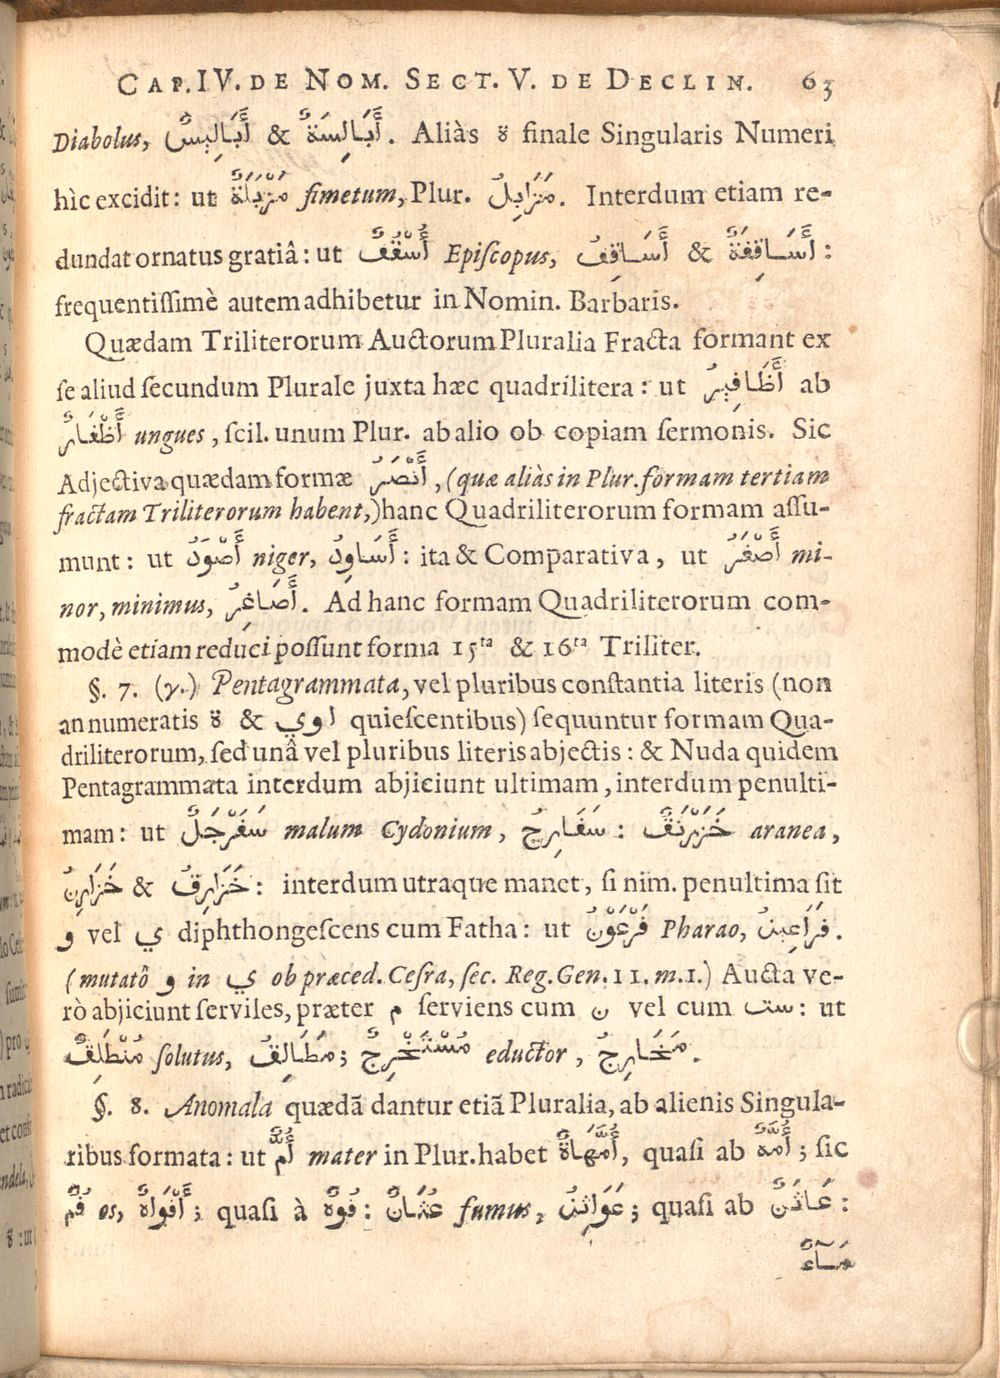 CAP. IV. DE NOM. SECT. V. DE DECLIN. 63
Diabolus, أَبَالِيسٌ & أَبَالِسَةٌ. Aliàs ة finale Singularis Numeri
hîc excidit: ut مَزْبَلَةٌ fimetum, Plur. مَزَابِلُ. Interdum etiam re-
dundat ornatus gratiâ: ut أُسْقُفٌ Epiſcopus, أَسَاقِفُ & أَسَاقِفَةٌ:
frequentiſſimè autem adhibetur in Nomin. Barbaris.
Quædam Triliterorum Auctorum Pluralia Fracta formant ex
ſe aliud ſecundum Plurale juxta hæc quadrilitera: ut أَظَافِيرُ ab
أَظْفَارٌ ungues, ſcil. unum Plur. ab alio ob copiam ſermonis. Sic
Adjectiva quædam formæ أَنْصَرُ, (quæ aliàs in Plur. formam tertiam
fractam Triliterorum habent,) hanc Quadriliterorum formam aſſu-
munt: ut أَسْوَدُ niger, أَسَاوِدُ: ita & Comparativa, ut أَصْغَرُ mi-
nor, minimus, أَصَاغِرُ. Ad hanc formam Quadriliterorum com-
modè etiam reduci poſſunt forma 15ta & 16ta Triliter.
§. 7. (γ.) Pentagrammata, vel pluribus conſtantia literis (non
annumeratis ة & اوي quieſcentibus) ſequuntur formam Qua-
driliterorum, ſed unâ vel pluribus literis abjectis: & Nuda quidem
Pentagrammata interdum abjiciunt ultimam, interdum penulti-
mam: ut سَفَرْجَلٌ malum Cydonium, سَفَارِجُ: خَزَرْنَقٌ aranea,
خَزَارِنُ & خَزَارِقُ: interdum utraque manet, ſi nim. penultima ſit
و vel ي diphthongeſcens cum Fatha: ut فِرْعَوْنُ Pharao, فَرَاعِينُ.
(mutatô و in ي ob præced. Ceſra, ſec. Reg. Gen. 11. m. 1.) Aucta ve-
rò abjiciunt ſerviles, præter م ſerviens cum ن vel cum ست: ut
مُنْطَلِقٌ ſolutus, مَطَالِقُ; مُسْتَخْرِجٌ eductor, مَخَارِجُ.
§. 8. Anomala quædã dantur etiã Pluralia, ab alienis Singula-
ribus formata: ut أُمٌّ mater in Plur. habet أُمَّهَاةٌ, quaſi ab أُمَّهٌ; ſic
فُمٌ os, أَفْوَاهٌ; quaſi à فُوهٌ: عُثَانٌ fumus, عَوَاثِنُ; quaſi ab عَاثَنٌ:
مَآءٌ